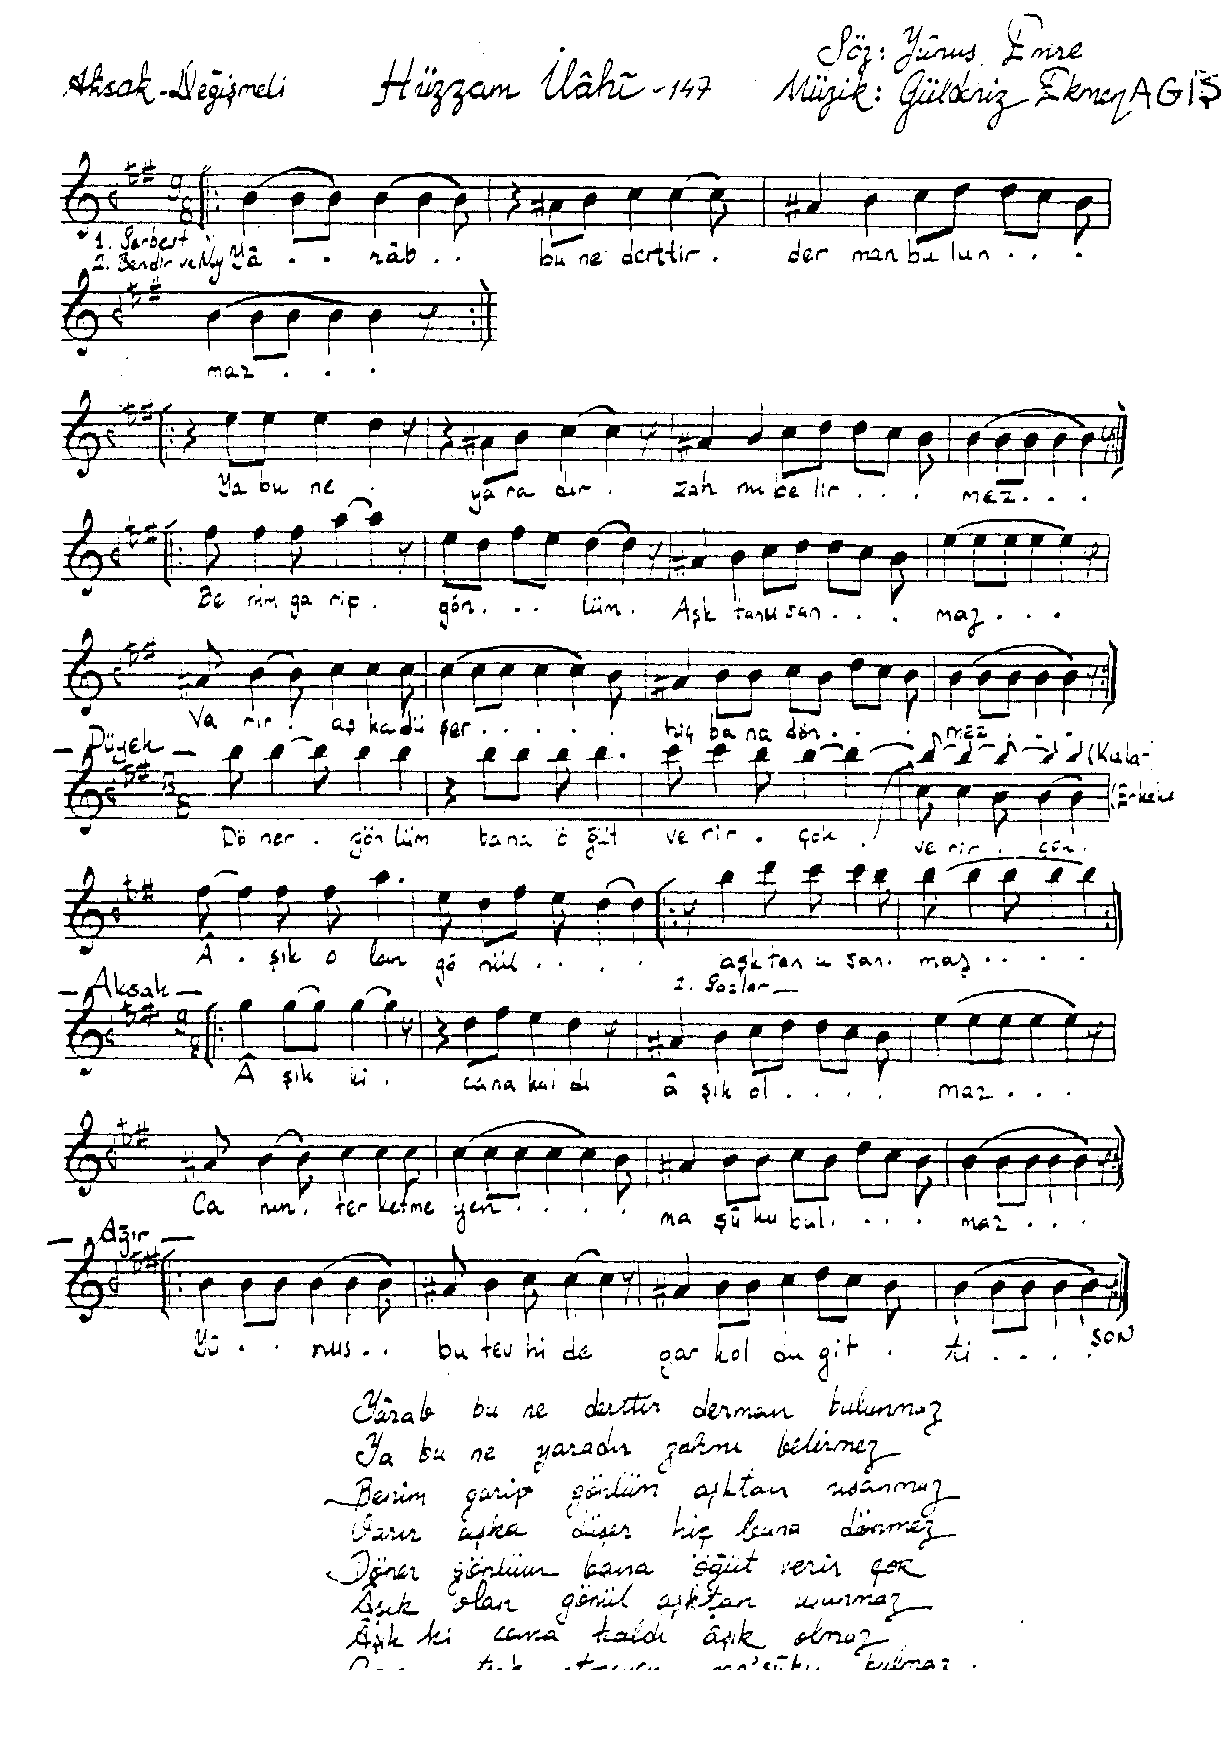 Söz: Yûnus Emre
Aksak-Değişmeli Hüzzam İlâhî -147 Müzik: Güldeniz Ekmen AGİŞ
9
8
1. Serbest
2. Bendir ve Ney Yâ . . râb . . bu ne derttir . der man bu lun . . .
maz . . .
Ya bu ne . ya ra dır . zah mı be lir . . . mez . . .
Be nim ga rip . gön . . . lüm . Aşk tan u san . . . maz . . .
Va rır . aş ka dü şer . . . . . hiç ba na dön . . . . mez . . .
- Düyek -
(Kızla-
8
8
(Erkekle
Dö ner . gön lüm ba na ö ğüt ve rir . çok . ve rir . çok .
Â . şık o lan gö nül . . . . aşk tan u san . maz . . . .
- Aksak -
2. Sazlar -
9
8
Â şık ki . cana kal dı â şık ol . . . . maz . . .
Ca nın . ter ketme yen . . . . ma şû ku bul . . . . maz . . .
- Ağır -
Yû . . nus . . bu tev hi de gar kol du git . ti . . . . SON
Yârab bu ne derttir derman bulunmaz
Ya bu ne yaradır zahmı belirmez
Benim garip gönlüm aşktan usanmaz
Varır aşka düşer hiç bana dönmez
Döner gönlüm bana öğüt verir çok
Âşık olan gönül aşktan usanmaz
Âşık ki cana kaldı âşık olmaz
ma'şûku bulmaz .